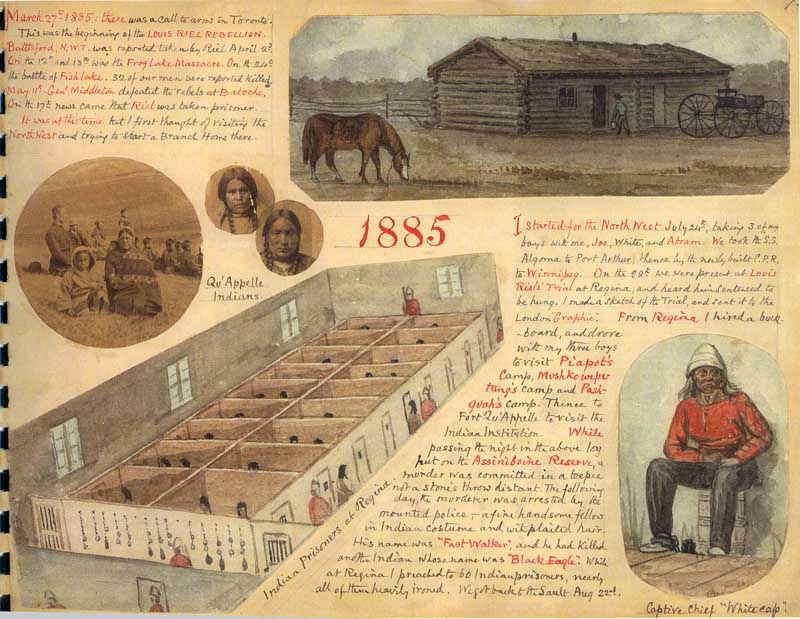 March 27th 1885: there was a call to arms in Toronto.
This was the beginning of the LOUIS RIEL REBELLION.
Battleford, N.W.T. was reported taken by Riel April 2d.
On the 12th and 13th was the Frog Lake Massacre. On the 24th
the battle of Fish Lake. 32 of our men were reported killed.
May 11th Genl Middleton defeated the rebels at Batoche,
On the 17th news came that Riel was taken prisoner.
It was at this time that I first thought of visiting the
North West and trying to start a Branch Home there.
Qu'Appelle
Indians.
1885
I started for the North West July 24th, taking 3 of my
boys with me, Joe, White, and Abram. We took the S.S.
Algoma to Port Arthur, thence by the newly built C.P.R.
to Winnipeg. On the 28th we were present at Louis
Riels' Trial at Regina, and heard him sentenced to
be hung. I made a sketch of the Trial, and sent it to the
London 'Graphic'. From Regina I hired a buck-
-board, and drove
with my three boys
to visit Piapot's
Camp, Mushkowpe-
tung's camp and Pash-
quah's camp. Thence to
Fort Qu'Appelle to visit the
Indian Institution. While
passing the night in the above log
hut on the Assiniboine Reserve, a
murder was committed in a teepee
not a stone's throw distant. The following
day, the murderer was arrested by the
mounted police, - a fine handsome fellow
in Indian costume and with plaited hair.
His name was "Fast Walker", and he had killed
another Indian whose name was "Black Eagle". While
at Regina I preached to 60 Indian prisoners, nearly
all of them heavily ironed. We got back to the Sault Aug 22nd.
Indian Prisoners at Regina
Captive Chief "White cap".